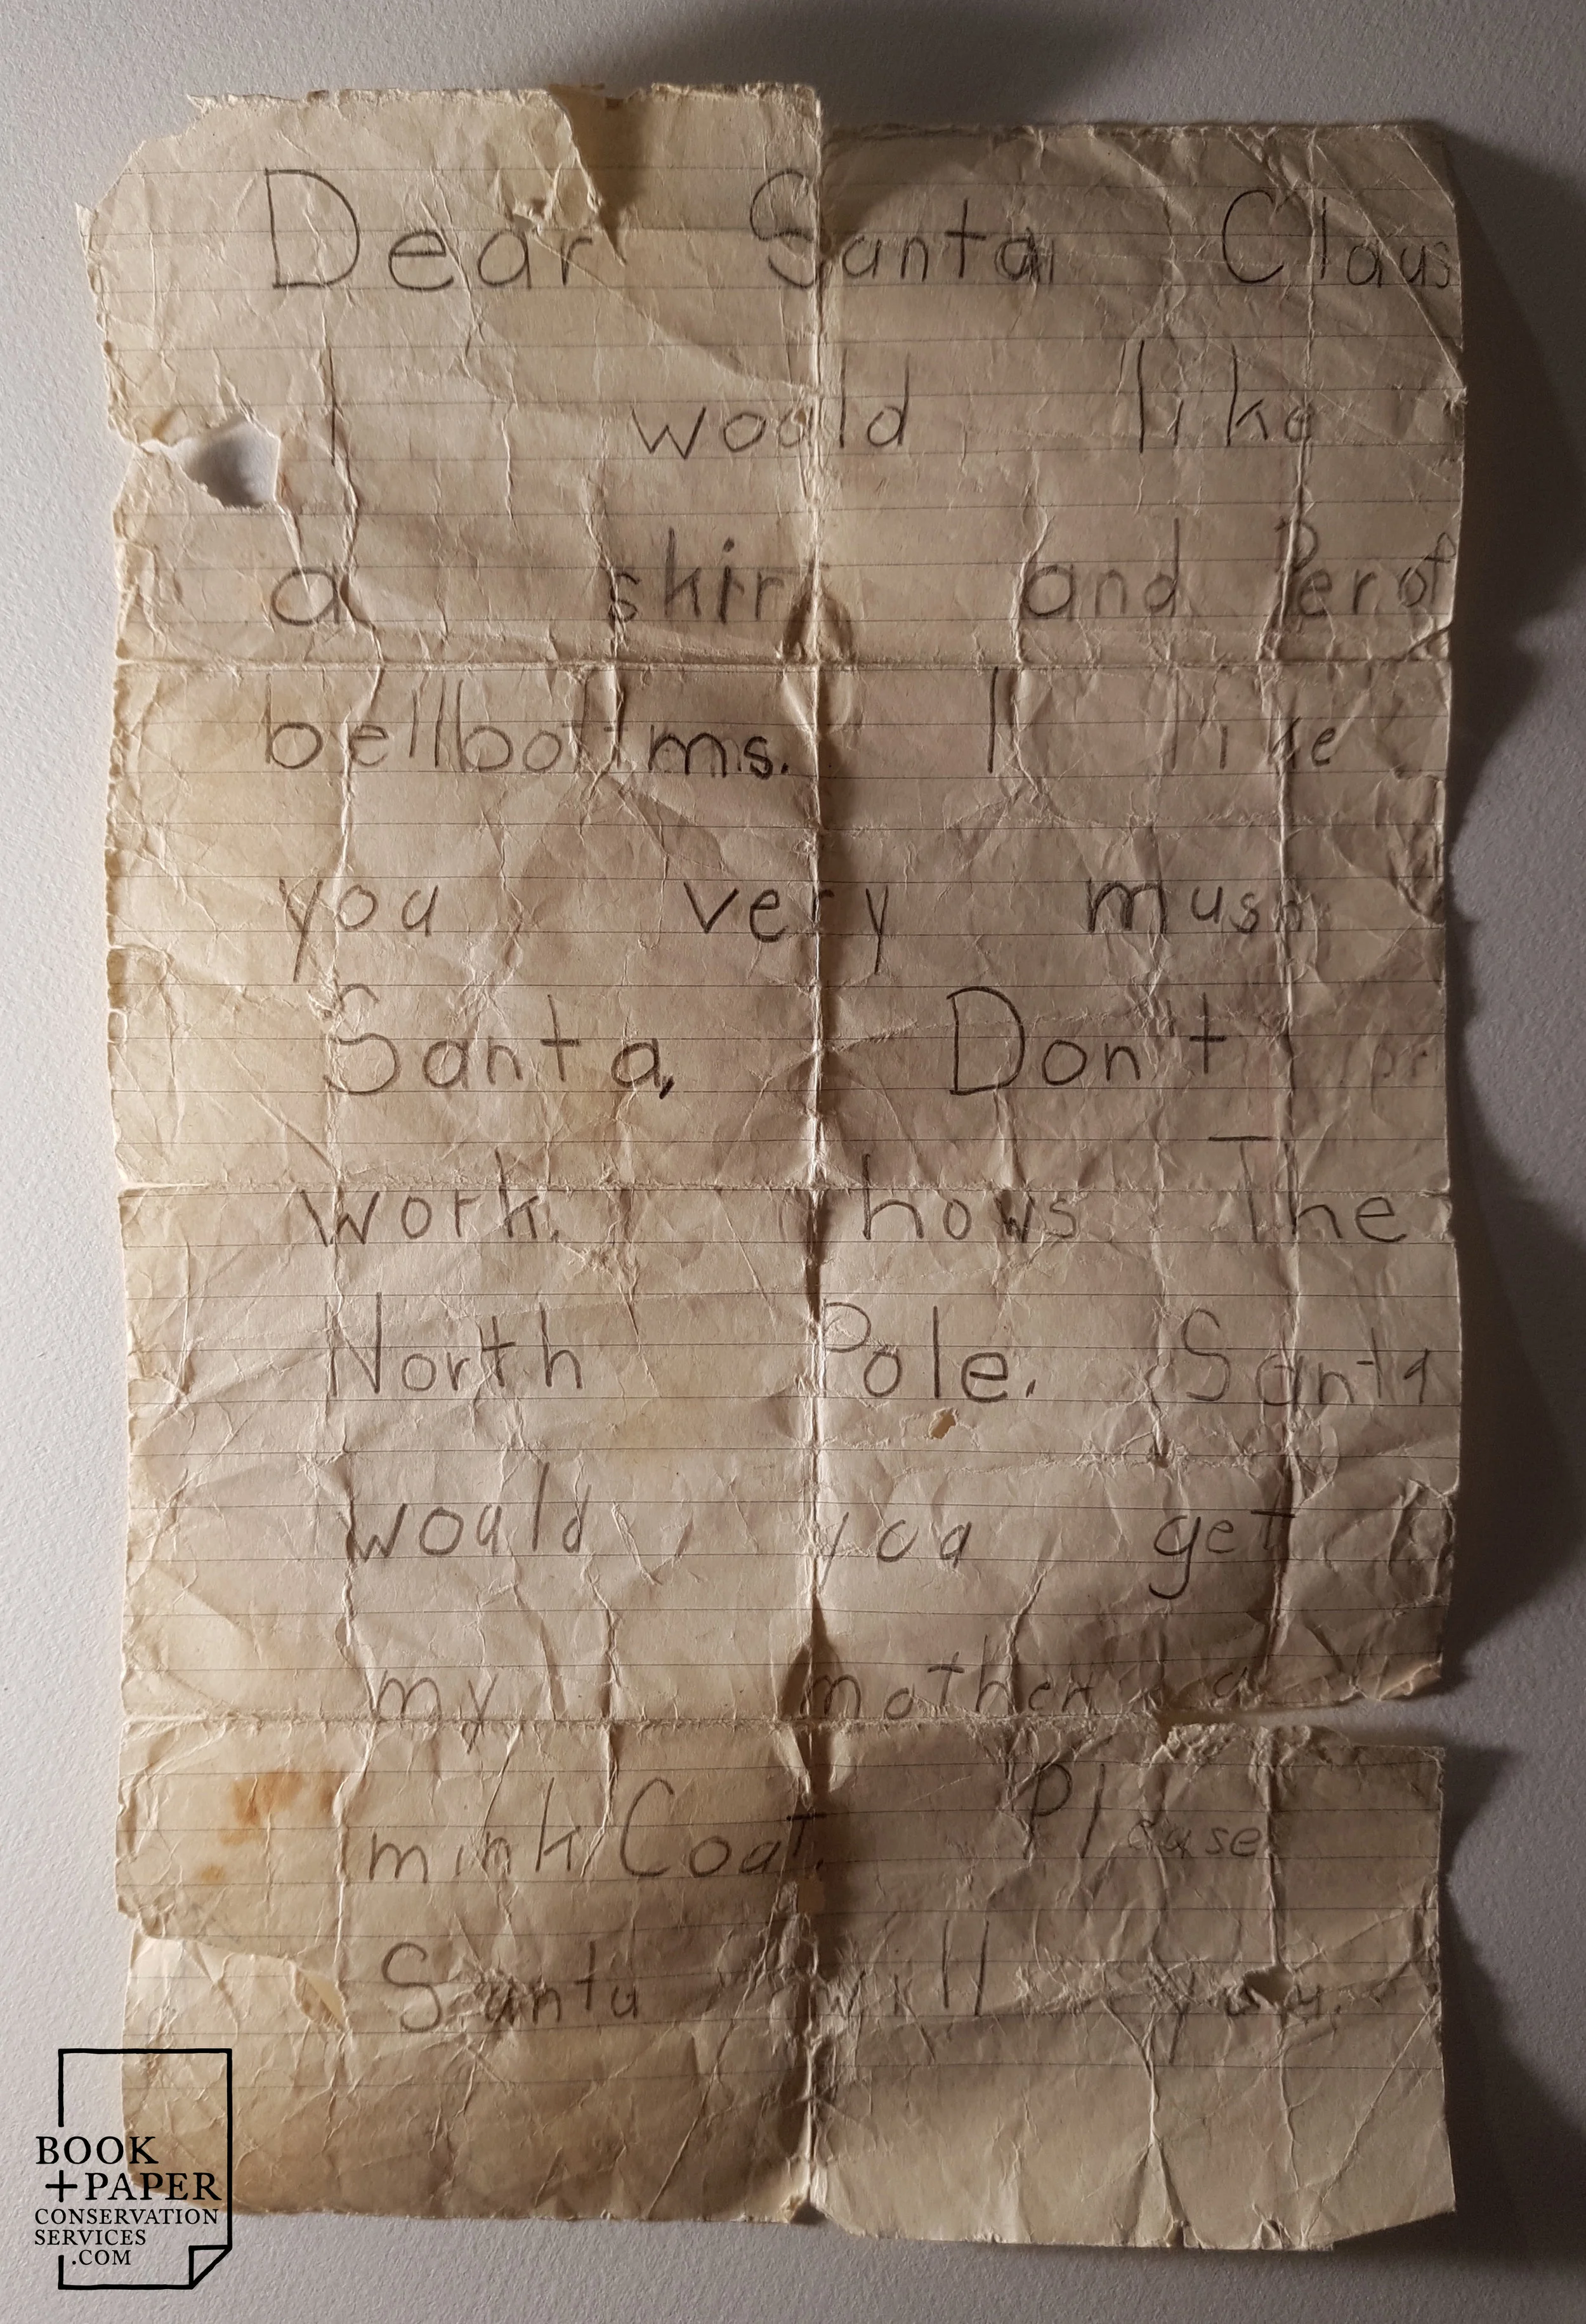 Dear Santa Claus
I would like
a skirt and Perof
bellbottms. I like
you very mush
Santa, Don't
work. hows The
North Pole. Santa
would you get
my mother a
mink Coat. Please
Santa will you.
BOOK
+PAPER
CONSERVATION
SERVICES
.COM